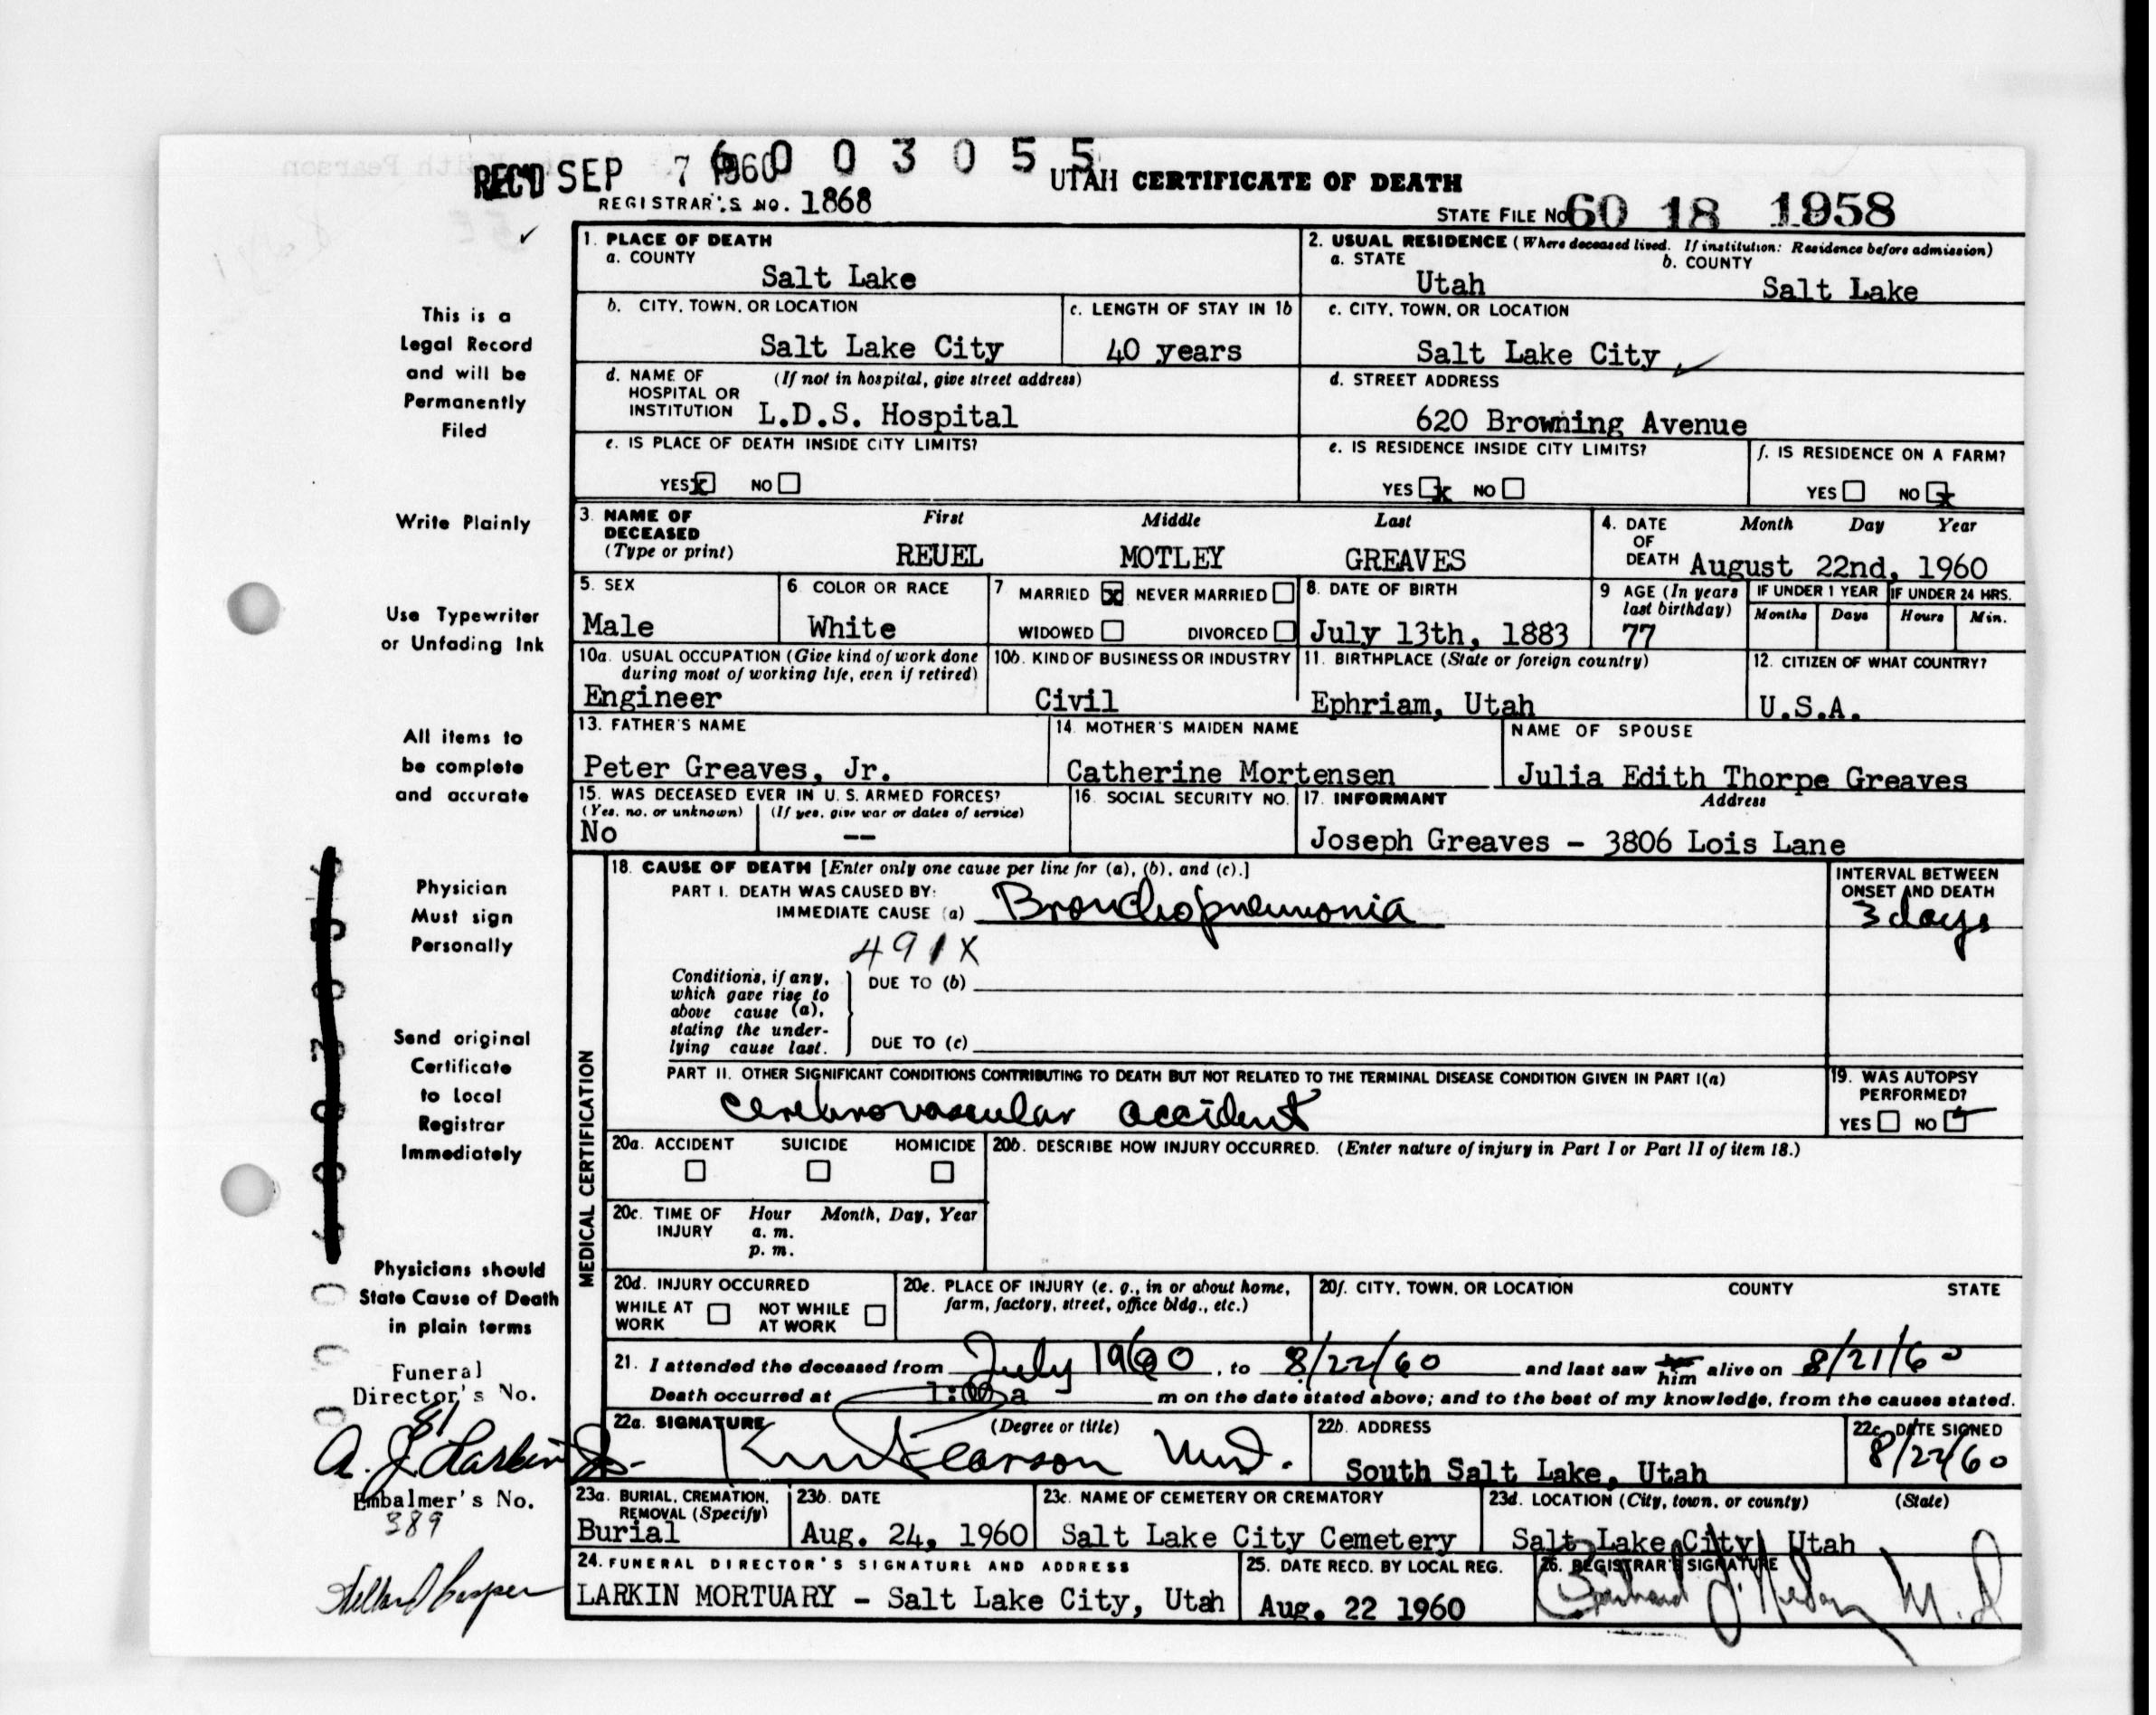 6 0 0 3 0 5 5
REC'D SEP 7 1960
UTAH CERTIFICATE OF DEATH
REGISTRAR'S NO. 1868
STATE FILE No 60 18 1958
This is a
Legal Record
and will be
Permanently
Filed
Write Plainly
Use Typewriter
or Unfading Ink
All items to
be complete
and accurate
Physician
Must sign
Personally
Send original
Certificate
to Local
Registrar
Immediately
Physicians should
State Cause of Death
in plain terms
Funeral
Director's No.
81
A. J. Larkin Jr.
Embalmer's No.
389
1. PLACE OF DEATH
a. COUNTY
Salt Lake
2. USUAL RESIDENCE (Where deceased lived. If institution: Residence before admission)
a. STATE b. COUNTY
Utah Salt Lake
b. CITY, TOWN, OR LOCATION
Salt Lake City
c. LENGTH OF STAY IN 1b
40 years
c. CITY, TOWN, OR LOCATION
Salt Lake City
d. NAME OF (If not in hospital, give street address)
HOSPITAL OR
INSTITUTION L.D.S. Hospital
d. STREET ADDRESS
620 Browning Avenue
e. IS PLACE OF DEATH INSIDE CITY LIMITS?
YES x NO
e. IS RESIDENCE INSIDE CITY LIMITS?
YES x NO
f. IS RESIDENCE ON A FARM?
YES NO x
3. NAME OF First Middle Last
DECEASED
(Type or print) REUEL MOTLEY GREAVES
4. DATE Month Day Year
OF
DEATH August 22nd, 1960
5. SEX
Male
6. COLOR OR RACE
White
7 MARRIED x NEVER MARRIED
WIDOWED DIVORCED
8. DATE OF BIRTH
July 13th, 1883
9 AGE (In years
last birthday)
77
IF UNDER 1 YEAR IF UNDER 24 HRS.
Months Days Hours Min.
10a. USUAL OCCUPATION (Give kind of work done
during most of working life, even if retired)
Engineer
10b. KIND OF BUSINESS OR INDUSTRY
Civil
11. BIRTHPLACE (State or foreign country)
Ephriam, Utah
12. CITIZEN OF WHAT COUNTRY?
U.S.A.
13. FATHER'S NAME
Peter Greaves, Jr.
14. MOTHER'S MAIDEN NAME
Catherine Mortensen
NAME OF SPOUSE
Julia Edith Thorpe Greaves
15. WAS DECEASED EVER IN U. S. ARMED FORCES?
(Yes, no, or unknown) (If yes, give war or dates of service)
No --
16. SOCIAL SECURITY NO.
17. INFORMANT Address
Joseph Greaves - 3806 Lois Lane
MEDICAL CERTIFICATION
18. CAUSE OF DEATH [Enter only one cause per line for (a), (b), and (c).]
PART I. DEATH WAS CAUSED BY:
IMMEDIATE CAUSE (a) Bronchopneumonia
INTERVAL BETWEEN
ONSET AND DEATH
3 days
491X
Conditions, if any,
which gave rise to
above cause (a),
stating the under-
lying cause last.
DUE TO (b)
DUE TO (c)
PART II. OTHER SIGNIFICANT CONDITIONS CONTRIBUTING TO DEATH BUT NOT RELATED TO THE TERMINAL DISEASE CONDITION GIVEN IN PART I(a)
cerebrovascular accident
19. WAS AUTOPSY
PERFORMED?
YES NO
20a. ACCIDENT SUICIDE HOMICIDE
20b. DESCRIBE HOW INJURY OCCURRED. (Enter nature of injury in Part I or Part II of item 18.)
20c. TIME OF Hour Month, Day, Year
INJURY a. m.
p. m.
20d. INJURY OCCURRED
WHILE AT NOT WHILE
WORK AT WORK
20e. PLACE OF INJURY (e. g., in or about home,
farm, factory, street, office bldg., etc.)
20f. CITY, TOWN, OR LOCATION COUNTY STATE
21. I attended the deceased from July 1960, to 8/22/60 and last saw him alive on 8/21/60
Death occurred at 1:00 a m on the date stated above; and to the best of my knowledge, from the causes stated.
22a. SIGNATURE (Degree or title)
Pearson M.D.
22b. ADDRESS
South Salt Lake, Utah
22c. DATE SIGNED
8/22/60
23a. BURIAL, CREMATION,
REMOVAL (Specify)
Burial
23b. DATE
Aug. 24, 1960
23c. NAME OF CEMETERY OR CREMATORY
Salt Lake City Cemetery
23d. LOCATION (City, town, or county) (State)
Salt Lake City, Utah
24. FUNERAL DIRECTOR'S SIGNATURE AND ADDRESS
LARKIN MORTUARY - Salt Lake City, Utah
25. DATE RECD. BY LOCAL REG.
Aug. 22 1960
26. REGISTRAR'S SIGNATURE
M.D